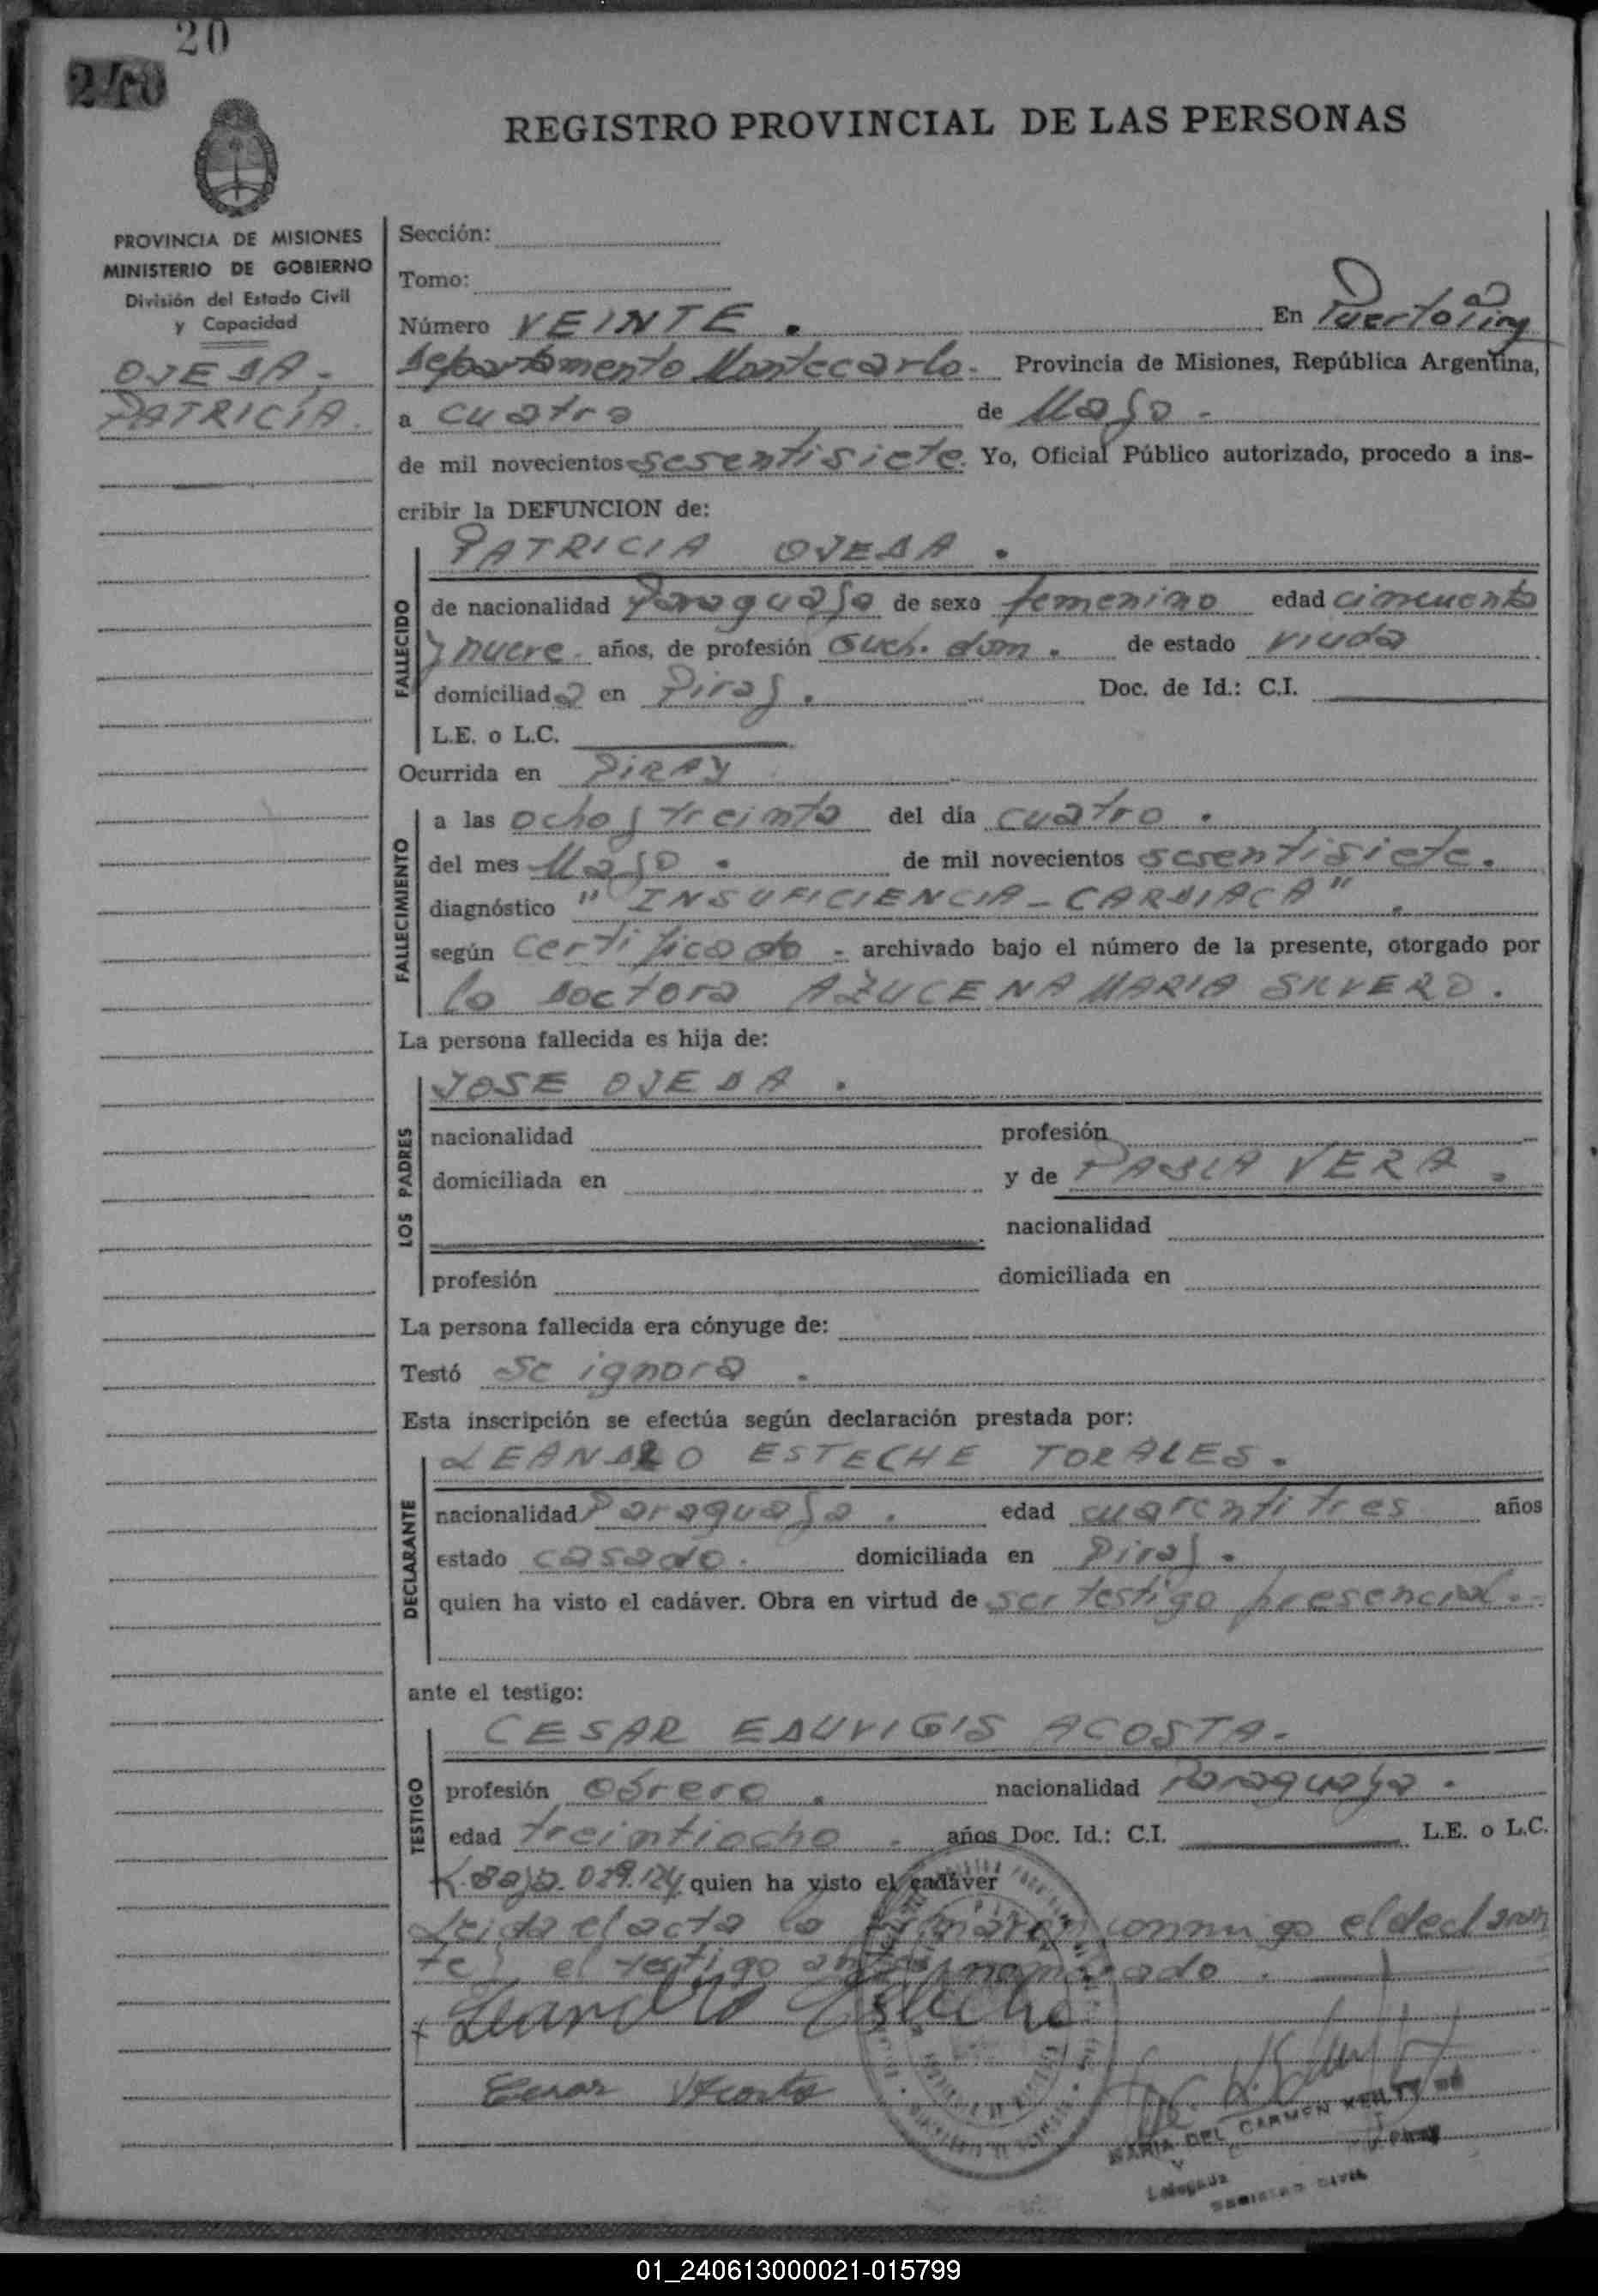 20
240
REGISTRO PROVINCIAL DE LAS PERSONAS
PROVINCIA DE MISIONES
MINISTERIO DE GOBIERNO
División del Estado Civil
y Capacidad
OJEDA,
PATRICIA.
Sección:
Tomo:
Número VEINTE. En Puerto Piray
departamento Montecarlo. Provincia de Misiones, República Argentina,
a cuatro de Mayo-
de mil novecientos sesentisiete. Yo, Oficial Público autorizado, procedo a ins-
cribir la DEFUNCION de:
PATRICIA OJEDA.
FALLECIDO
de nacionalidad Paraguaya de sexo femenino edad cincuenta
y nueve años, de profesión Queh. dom. de estado viuda
domiciliada en Piray. Doc. de Id.: C.I.
L.E. o L.C.
Ocurrida en PIRAY
FALLECIMIENTO
a las ocho y treinta del día cuatro.
del mes Mayo. de mil novecientos sesentisiete.
diagnóstico "INSUFICIENCIA-CARDIACA".
según certificado - archivado bajo el número de la presente, otorgado por
la doctora AZUCENA MARIA SILVERO.
La persona fallecida es hija de:
LOS PADRES
JOSE OJEDA.
nacionalidad profesión
domiciliada en y de PABLA VERA.
nacionalidad
profesión domiciliada en
La persona fallecida era cónyuge de:
Testó se ignora.
Esta inscripción se efectúa según declaración prestada por:
DECLARANTE
LEANDRO ESTECHE TORALES.
nacionalidad Paraguaya. edad cuarentitres años
estado casado. domiciliada en Piray.
quien ha visto el cadáver. Obra en virtud de ser testigo presencial.-
ante el testigo:
TESTIGO
CESAR EDUVIGIS ACOSTA.
profesión obrero. nacionalidad Paraguaya.
edad treintiocho. años Doc. Id.: C.I. L.E. o L.C.
quien ha visto el cadáver
Leida el acta la firmaron conmigo el declaran
te y el testigo antes nombrado.
Leandro Esteche
Cesar Acosta
MARIA DEL CARMEN
Delegada
REGISTRO CIVIL
01_240613000021-015799